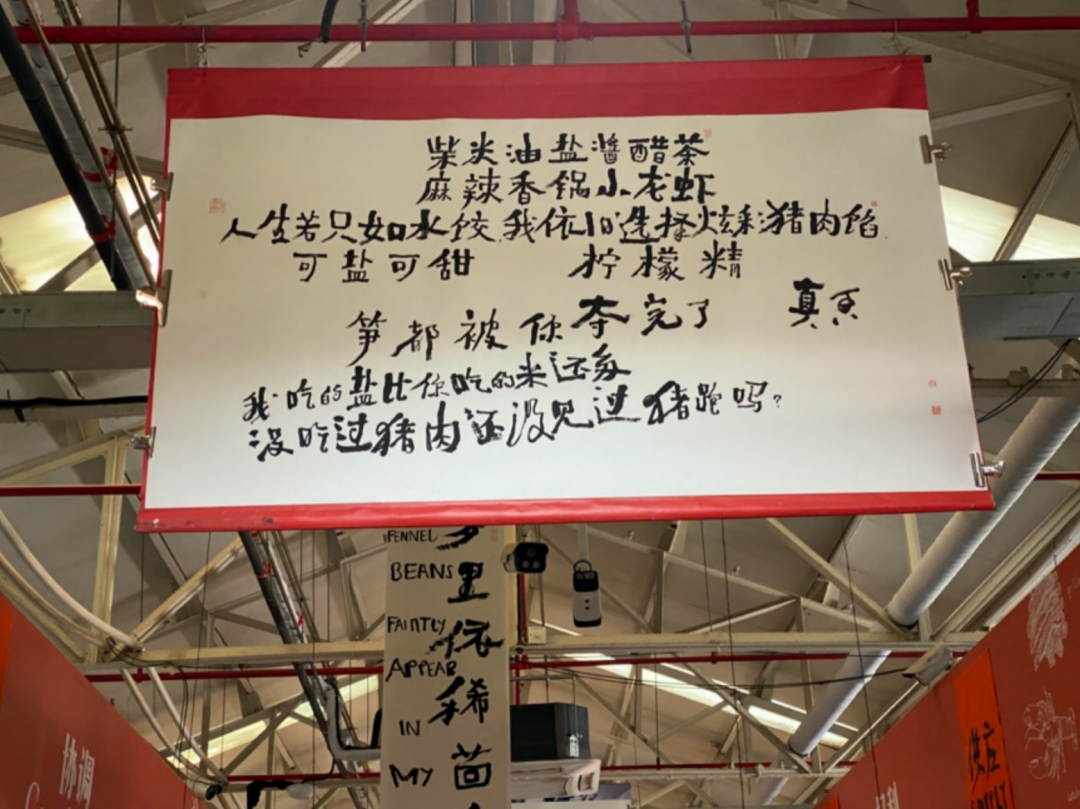 柴米油盐酱醋茶
麻辣香锅小龙虾
人生若只如水饺 我依旧选择炫彩猪肉馅
可盐可甜 柠檬精
笋都被你夺完了 真香
我吃的盐比你吃的米还多
没吃过猪肉还没见过猪跑吗？
FENNEL
BEANS
FAINTLY
APPEAR
IN
MY
梦里依稀茴
协调
供应